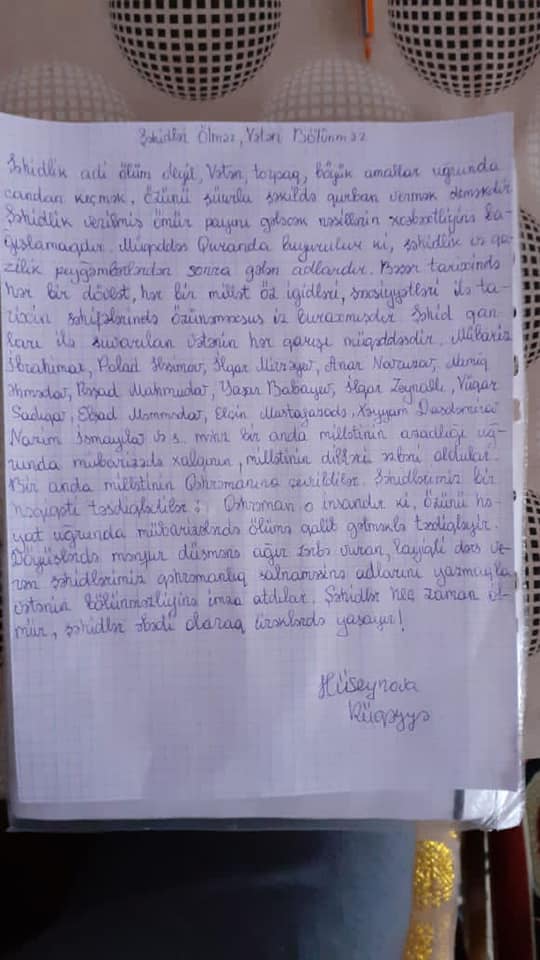 Şəhidlər Ölməz, Vətən Bölünməz
Şəhidlik adi ölüm deyil, Vətən, torpaq, böyük amallar uğrunda
candan keçmək, özünü şüurlu şəkildə qurban vermək deməkdir.
Şəhidlik verilmiş ömür payını gələcək nəsillərin xoşbəxtliyinə ba-
ğışlamaqdır. Müqəddəs Quranda buyurulur ki, şəhidlik və qa-
zilik peyğəmbərlərdən sonra gələn adlardır. Bəşər tarixində
hər bir dövlət, hər bir millət öz igidləri, şəxsiyyətləri ilə ta-
rixin səhifələrində özünəməxsus iz buraxmışdır. Şəhid qan-
ları ilə suvarılan vətənin hər qarışı müqəddəsdir. Mübariz
İbrahimov, Polad Həşimov, İlqar Mirzəyev, Anar Novruzov, Namiq
Əhmədov, Rəşad Mahmudov, Yaşar Babayev, İlqar Zeynallı, Vüqar
Sadıqov, Elşad Məmmədov, Elçin Mustafazadə, Xəyyam Daşdəmirov
Nərim İsmayılov və s. minə bir anda millətinin azadlığı uğ-
runda mübarizədə xalqının, millətinin dillər əzbəri oldular.
Bir anda millətinin Qəhrəmanına çevrildilər. Şəhidlərimiz bir
həqiqəti təsdiqlədilər: Qəhrəman o insandır ki, özünü hə-
yat uğrunda mübarizələrdə ölümə qalib gəlməklə təsdiqləyir.
Döyüşlərdə mənfur düşmənə ağır zərbə vuran, layiqli dərs ve-
rən şəhidlərimiz qəhrəmanlıq salnaməsinə adlarını yazmaqla
vətənin bölünməzliyinə imza atdılar. Şəhidlər heç zaman öl-
mür, şəhidlər əbədi olaraq ürəklərdə yaşayır!
Hüseynova
Rüqəyyə